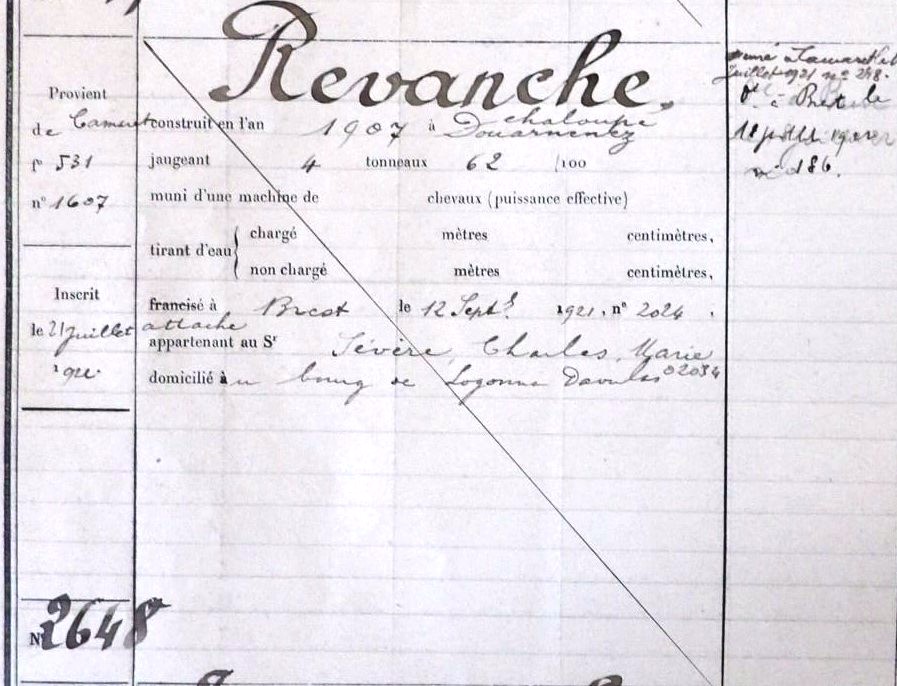 Revanche.
Provient
de Camaret
f° 531
n° 1607
chaloupe
construit en l'an 1907 à Douarnenez
jaugeant 4 tonneaux 62 /100
muni d'une machine de chevaux (puissance effective)
tirant d'eau
chargé mètres centimètres,
non chargé mètres centimètres,
Inscrit
le 21 juillet
francisé à Brest le 12 Sept. 1921, n° 2024.
attaché
appartenant au Sr Sévère, Charles, Marie
domicilié au bourg de Logonna Daoulas 02034
armé
juillet 1921 n° 248.
le
n° 186.
N° 2648